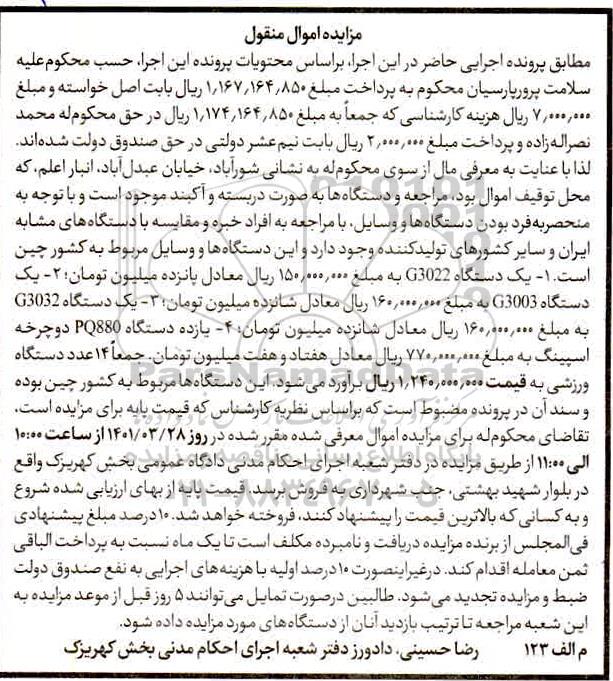 مزایده اموال منقول
مطابق پرونده اجرایی حاضر در این اجرا، براساس محتویات پرونده این اجرا، حسب محکوم‌علیه
سلامت پرورپارسیان محکوم به پرداخت مبلغ ۱٫۱۶۷٫۱۶۴٫۸۵۰ ریال بابت اصل خواسته و مبلغ
۷٫۰۰۰٫۰۰۰ ریال هزینه کارشناسی که جمعاً به مبلغ ۱٫۱۷۴٫۱۶۴٫۸۵۰ ریال در حق محکوم‌له محمد
نصراله‌زاده و پرداخت مبلغ ۲٫۰۰۰٫۰۰۰ ریال بابت نیم‌عشر دولتی در حق صندوق دولت شده‌اند.
لذا با عنایت به معرفی مال از سوی محکوم‌له به نشانی شورآباد، خیابان عبدل‌آباد، انبار اعلم، که
محل توقیف اموال بود، مراجعه و دستگاه‌ها به صورت دربسته و آکبند موجود است و با توجه به
منحصربه‌فرد بودن دستگاه‌ها و وسایل، با مراجعه به افراد خبره و مقایسه با دستگاه‌های مشابه
ایران و سایر کشورهای تولیدکننده وجود دارد و این دستگاه‌ها و وسایل مربوط به کشور چین
است. ۱- یک دستگاه G3022 به مبلغ ۱۵۰٫۰۰۰٫۰۰۰ ریال معادل پانزده میلیون تومان؛ ۲- یک
دستگاه G3003 به مبلغ ۱۶۰٫۰۰۰٫۰۰۰ ریال معادل شانزده میلیون تومان؛ ۳- یک دستگاه G3032
به مبلغ ۱۶۰٫۰۰۰٫۰۰۰ ریال معادل شانزده میلیون تومان؛ ۴- یازده دستگاه PQ880 دوچرخه
اسپینگ به مبلغ ۷۷۰٫۰۰۰٫۰۰۰ ریال معادل هفتاد و هفت میلیون تومان. جمعاً ۱۴ عدد دستگاه
ورزشی به قیمت ۱٫۲۴۰٫۰۰۰٫۰۰۰ ریال برآورد می‌شود. این دستگاه‌ها مربوط به کشور چین بوده
و سند آن در پرونده مضبوط است که براساس نظریه کارشناس که قیمت پایه برای مزایده است،
تقاضای محکوم‌له برای مزایده اموال معرفی شده مقرر شده در روز ۱۴۰۱/۰۳/۲۸ از ساعت ۱۰:۰۰
الی ۱۱:۰۰ از طریق مزایده در دفتر شعبه اجرای احکام مدنی دادگاه عمومی بخش کهریزک واقع
در بلوار شهید بهشتی، جنب شهرداری به فروش برسد. قیمت پایه از بهای ارزیابی شده شروع
و به کسانی که بالاترین قیمت را پیشنهاد کنند، فروخته خواهد شد. ۱۰ درصد مبلغ پیشنهادی
فی‌المجلس از برنده مزایده دریافت و نامبرده مکلف است تا یک ماه نسبت به پرداخت الباقی
ثمن معامله اقدام کند. درغیراینصورت ۱۰ درصد اولیه با هزینه‌های اجرایی به نفع صندوق دولت
ضبط و مزایده تجدید می‌شود. طالبین درصورت تمایل می‌توانند ۵ روز قبل از موعد مزایده به
این شعبه مراجعه تا ترتیب بازدید آنان از دستگاه‌های مورد مزایده داده شود.
م الف ۱۲۳ رضا حسینی. دادورز دفتر شعبه اجرای احکام مدنی بخش کهریزک
ParsNamadData
پایگاه اطلاع رسانی مناقصه و مزایده